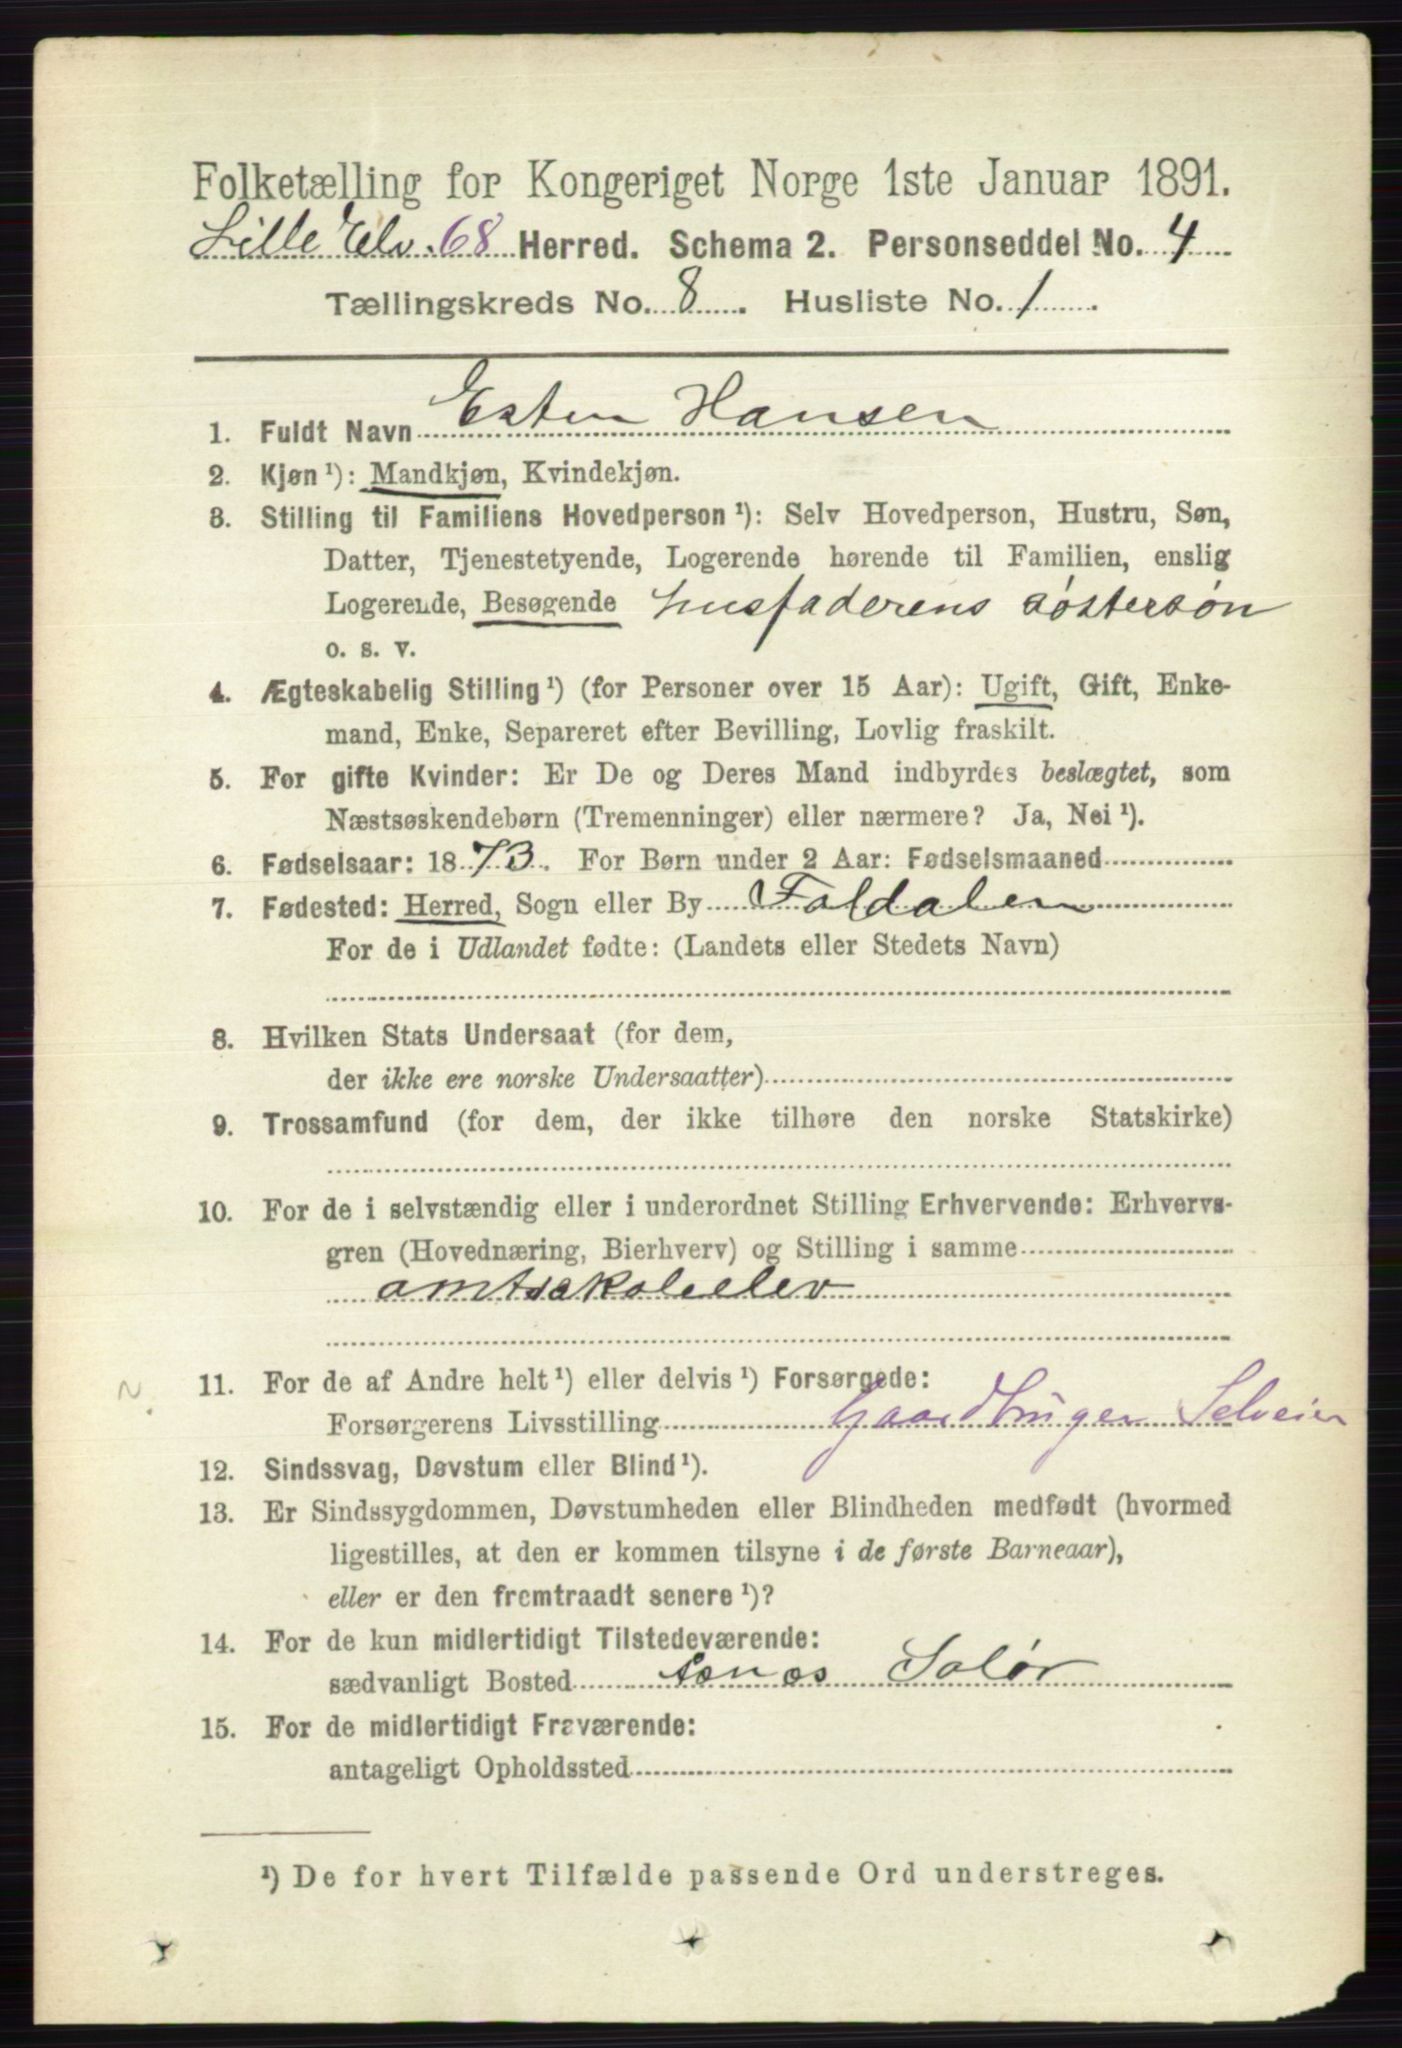 Folketælling for Kongeriget Norge 1ste Januar 1891.
Lille Elv. 68 Herred. Schema 2. Personseddel No. 4
Tællingskreds No. 8. Husliste No. 1.
1. Fuldt Navn Esten Hansen
2. Kjøn ¹): Mandkjøn, Kvindekjøn.
3. Stilling til Familiens Hovedperson ¹): Selv Hovedperson, Hustru, Søn,
Datter, Tjenestetyende, Logerende hørende til Familien, enslig
Logerende, Besøgende husfaderens søstersøn
o. s. v.
4. Ægteskabelig Stilling ¹) (for Personer over 15 Aar): Ugift, Gift, Enke-
mand, Enke, Separeret efter Bevilling, Lovlig fraskilt.
5. For gifte Kvinder: Er De og Deres Mand indbyrdes beslægtet, som
Næstsøskendebørn (Tremenninger) eller nærmere? Ja, Nei ¹).
6. Fødselsaar: 1873. For Børn under 2 Aar: Fødselsmaaned
7. Fødested: Herred, Sogn eller By Foldalen
For de i Udlandet fødte: (Landets eller Stedets Navn)
8. Hvilken Stats Undersaat (for dem,
der ikke ere norske Undersaatter)
9. Trossamfund (for dem, der ikke tilhøre den norske Statskirke)
10. For de i selvstændig eller i underordnet Stilling Erhvervende: Erhvervs-
gren (Hovednæring, Bierhverv) og Stilling i samme
amtsskoleelev
11. For de af Andre helt ¹) eller delvis ¹) Forsørgede:
Forsørgerens Livsstilling Gaardbruger Selveier
12. Sindssvag, Døvstum eller Blind ¹).
13. Er Sindssygdommen, Døvstumheden eller Blindheden medfødt (hvormed
ligestilles, at den er kommen tilsyne i de første Barneaar),
eller er den fremtraadt senere ¹)?
14. For de kun midlertidigt Tilstedeværende:
sædvanligt Bosted Solør
15. For de midlertidigt Fraværende:
antageligt Opholdssted
¹) De for hvert Tilfælde passende Ord understreges.